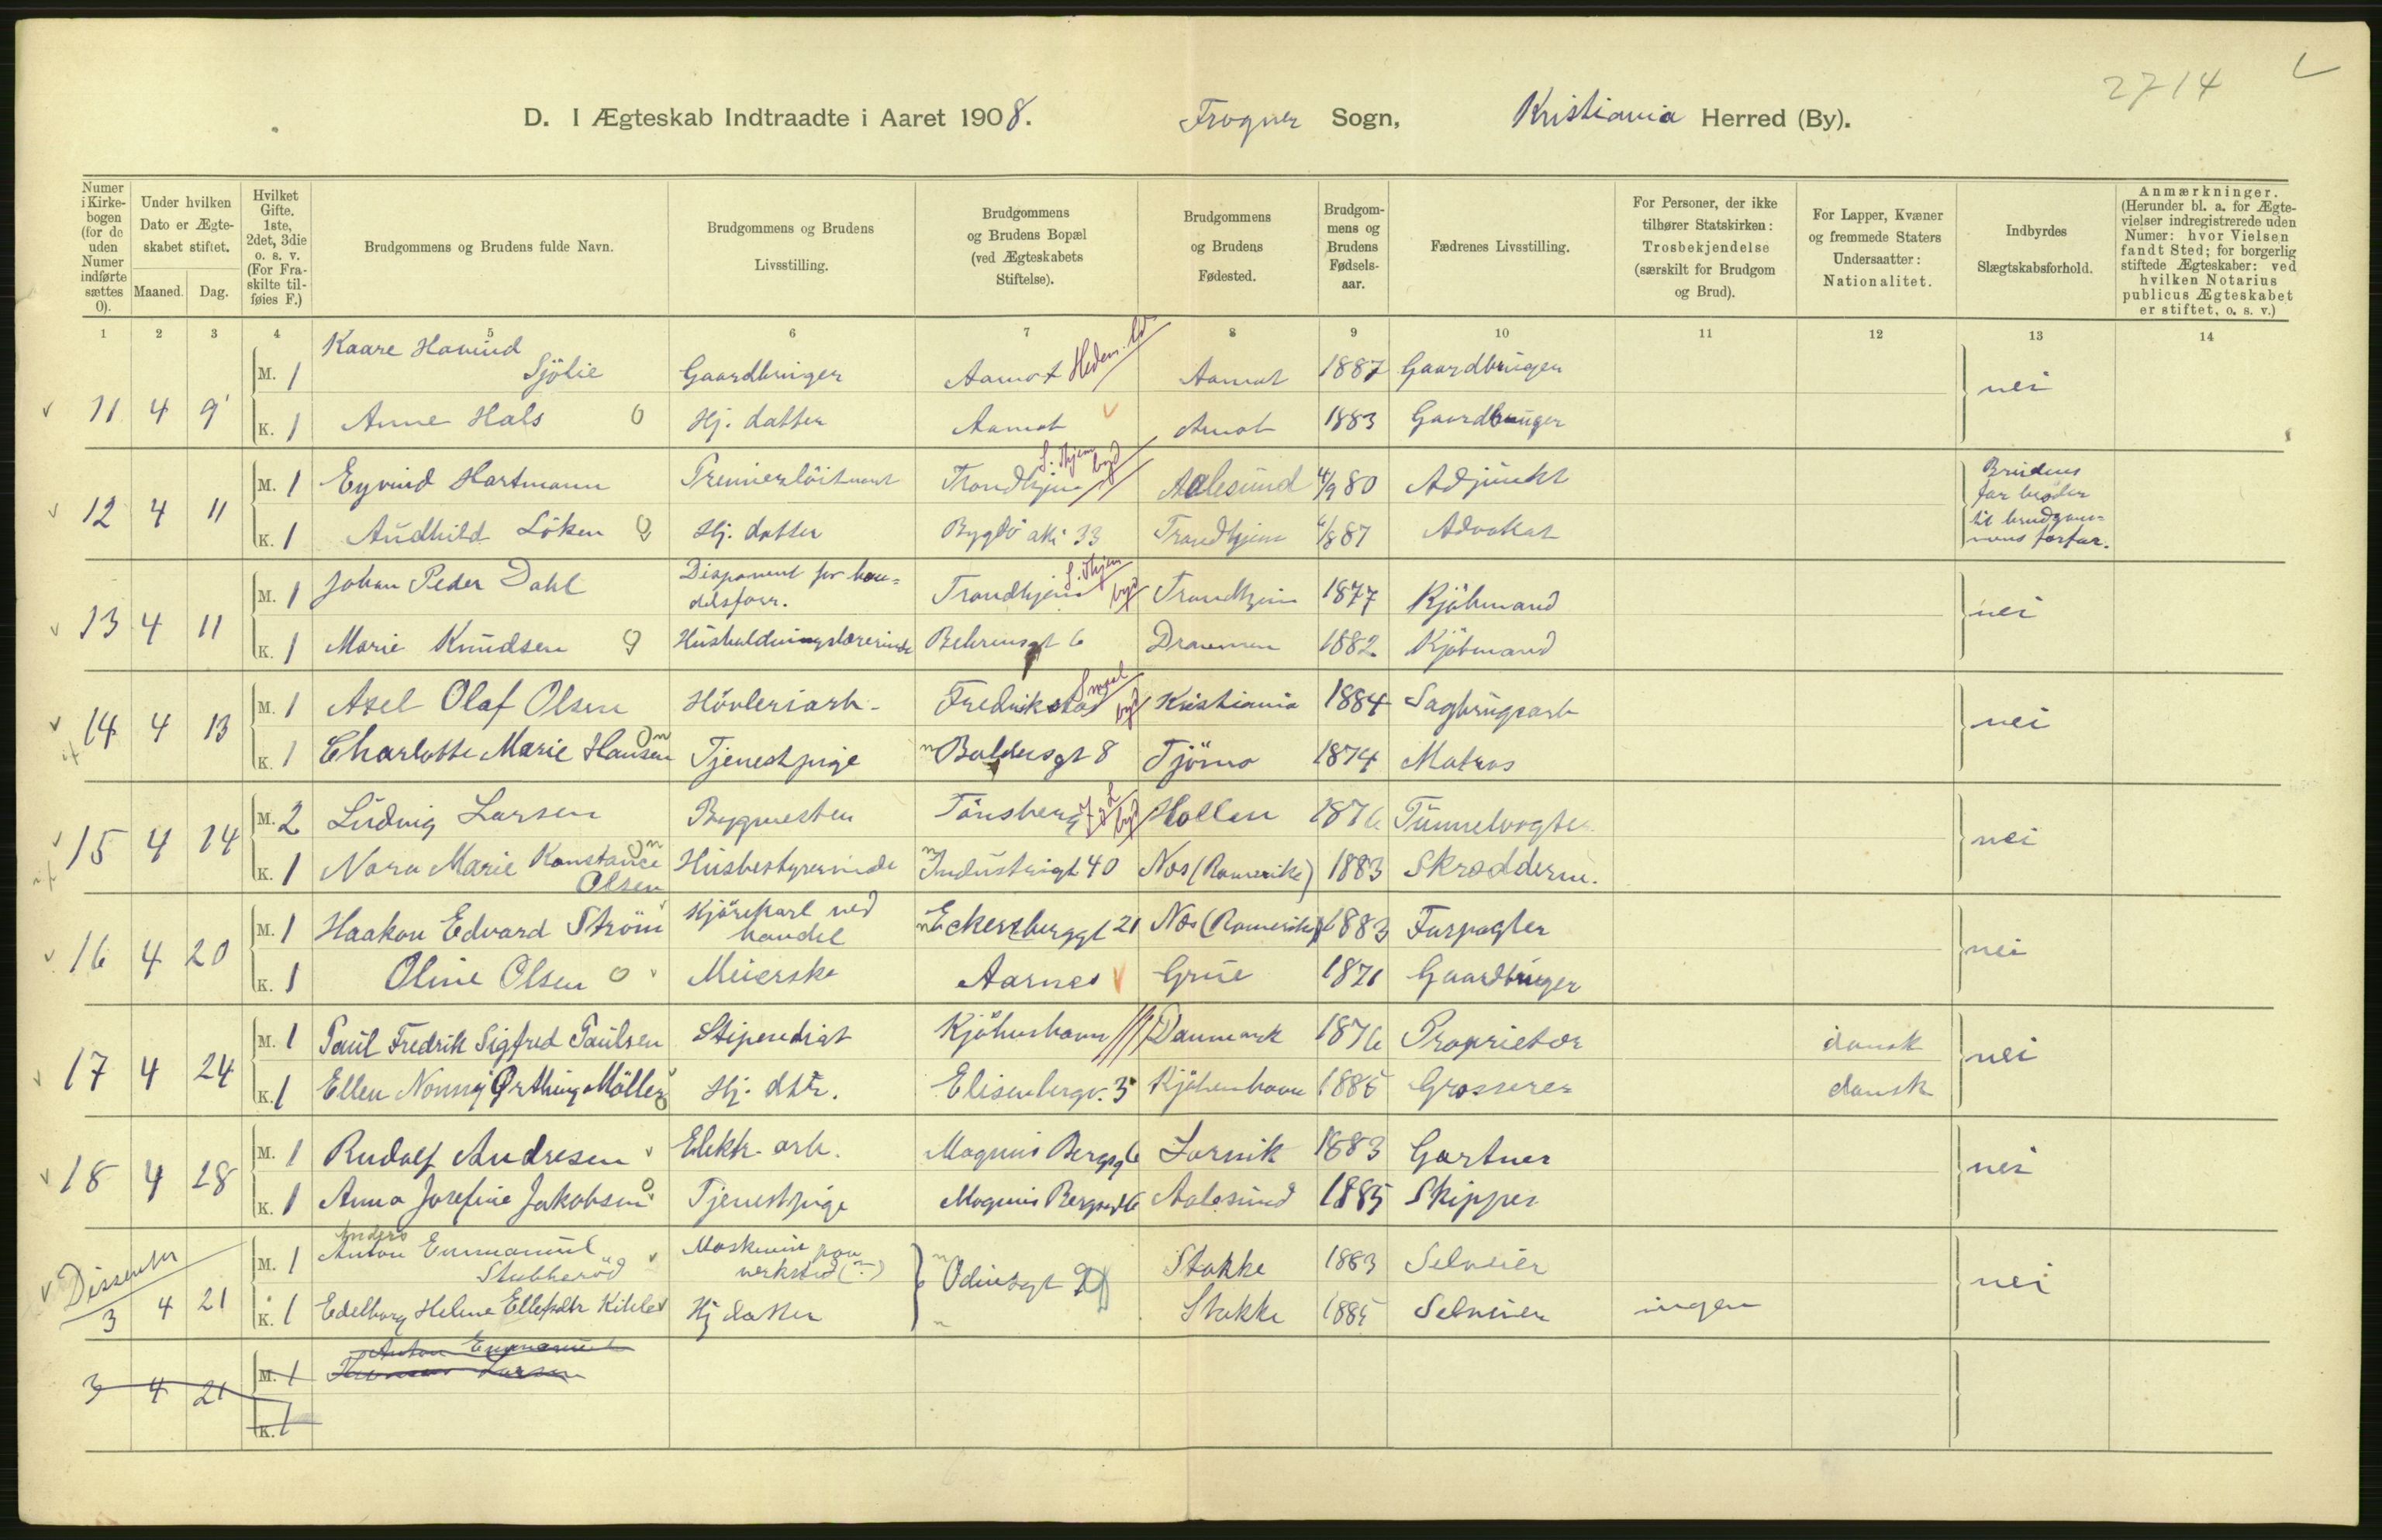 2714
D. I Ægteskab Indtraadte i Aaret 1908. Frogner Sogn, Kristiania Herred (By).
Numer i Kirkebogen (for de uden Numer indførte sættes 0).
Under hvilken Dato er Ægteskabet stiftet.
Maaned. Dag.
Hvilket Gifte. 1ste, 2det, 3die o. s. v. (For Fraskilte tilføies F.)
Brudgommens og Brudens fulde Navn.
Brudgommens og Brudens Livsstilling.
Brudgommens og Brudens Bopæl (ved Ægteskabets Stiftelse).
Brudgommens og Brudens Fødested.
Brudgommens og Brudens Fødselsaar.
Fædrenes Livsstilling.
For Personer, der ikke tilhører Statskirken: Trosbekjendelse (særskilt for Brudgom og Brud).
For Lapper, Kvæner og fremmede Staters Undersaatter: Nationalitet.
Indbyrdes Slægtskabsforhold.
Anmærkninger. (Herunder bl. a. for Ægtevielser indregistrerede uden Numer: hvor Vielsen fandt Sted; for borgerlig stiftede Ægteskaber: ved hvilken Notarius publicus Ægteskabet er stiftet, o. s. v.)
1 2 3 4 5 6 7 8 9 10 11 12 13 14
11 4 9
M. 1 Kaare Havind Sjölie Gaardbruger Aamot Heden. Aamot 1887 Gaardbruger nei
K. 1 Anne Hals Hj. datter Aamot Amot 1883 Gaardbruger
12 4 11
M. 1 Eyvind Hartmann Premierlöitnant Trondhjem Aalesund 4/9 80 Adjunkt Brudens far broder til brudgommens farfar.
K. 1 Audhild Löken Hj. datter Bygdö alle 33 Trondhjem 87 Advokat
13 4 11
M. 1 Johan Peder Dahl Disponent for handelsforr. Trondhjem Trondhjem 1877 Kjöbmand nei
K. 1 Marie Knudsen Husholdningslærerinde Behrensgt 6 Drammen 1882 Kjöbmand
14 4 13
M. 1 Axel Olaf Olsen Hövleriarb. Fredrikstad Kristiania 1884 Sagbrugsarb nei
K. 1 Charlotte Marie Hansen Tjenestpige Baldersgt 8 Tjömo 1874 Matros
15 4 14
M. 2 Ludvig Larsen Bygmester Tönsberg Hollen 1876 Tunnelvogter nei
K. 1 Nora Marie Konstance Olsen Husbestyrerinde Industrigt 40 Nes (Romerike) 1883 Skrædderm.
16 4 20
M. 1 Haakon Edvard Ström Kjörekarl ved handel Eckersberggt 21 Nes (Romerike) 1883 Forpagter nei
K. 1 Oline Olsen Meierske Aarnes Grue 1871 Gaardbruger
17 4 24
M. 1 Paul Fredrik Sigfred Paulsen Stipendiat Kjöbenhavn Danmark 1876 Proprietær dansk nei
K. 1 Ellen Nonny Örthing Möller Hj. dtr. Elisenbergv. 3 Kjöbenhavn 1885 Grosserer dansk
18 4 28
M. 1 Rudolf Andresen Elektr. arb. Magnus Bergsg 6 Larvik 1883 Gartner nei
K. 1 Anna Josefine Jakobsen Tjenestpige Magnus Bergsgt 6 Aalesund 1885 Skipper
Dissenter 3 4 21
M. 1 Anders Anton Emmanuel Stubberöd Maskinist paa verksted Odinsgt Stokke 1883 Selveier nei
K. 1 Edelborg Helene Ellefsdtr Hj datter Stokke 1885 Selveier ingen
3 4 21
M. 1 Anton Emmanuel Larsen
K. 1